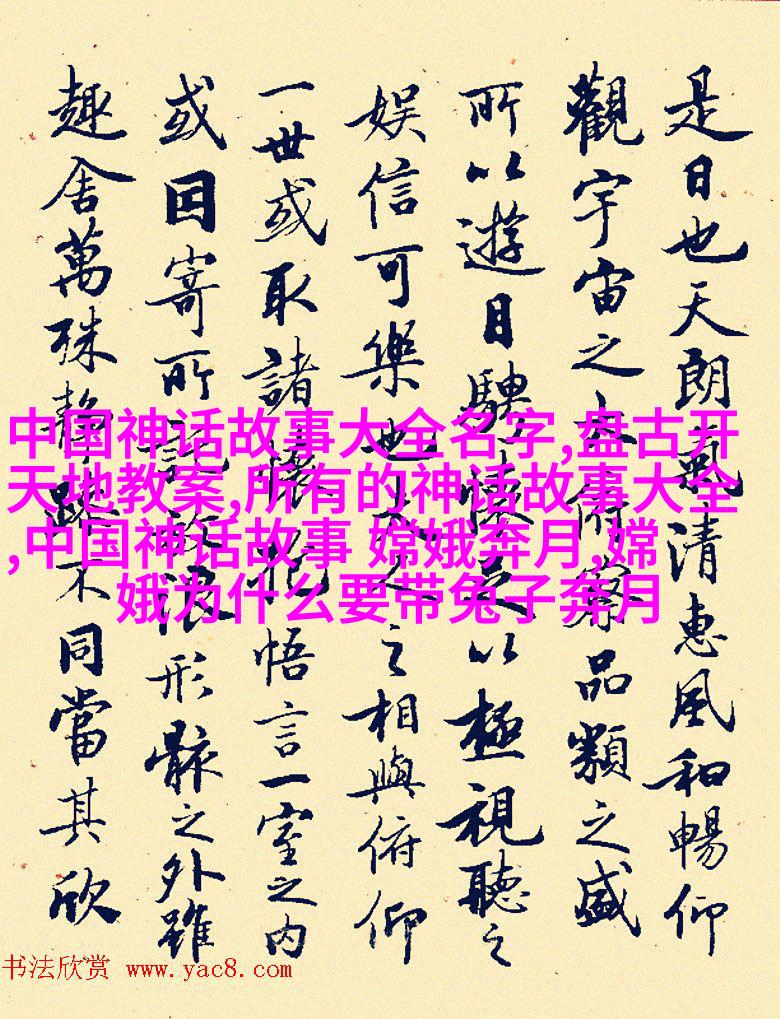 是日也天朗氣清惠風和暢仰
觀宇宙之大俯察品類之盛
所以遊目騁懷足以極視聽之
娱信可樂也夫人之相與俯仰
一世或取諸懷抱悟言一室之内
或因寄所託放浪形骸之外雖
趣舍萬殊靜躁不同當其欣
中国神话故事大全名字,盘古开
天地教案,所有的神话故事大全
,中国神话故事 嫦娥奔月,嫦
娥为什么要带兔子奔月
书法欣赏 www.yac8.com